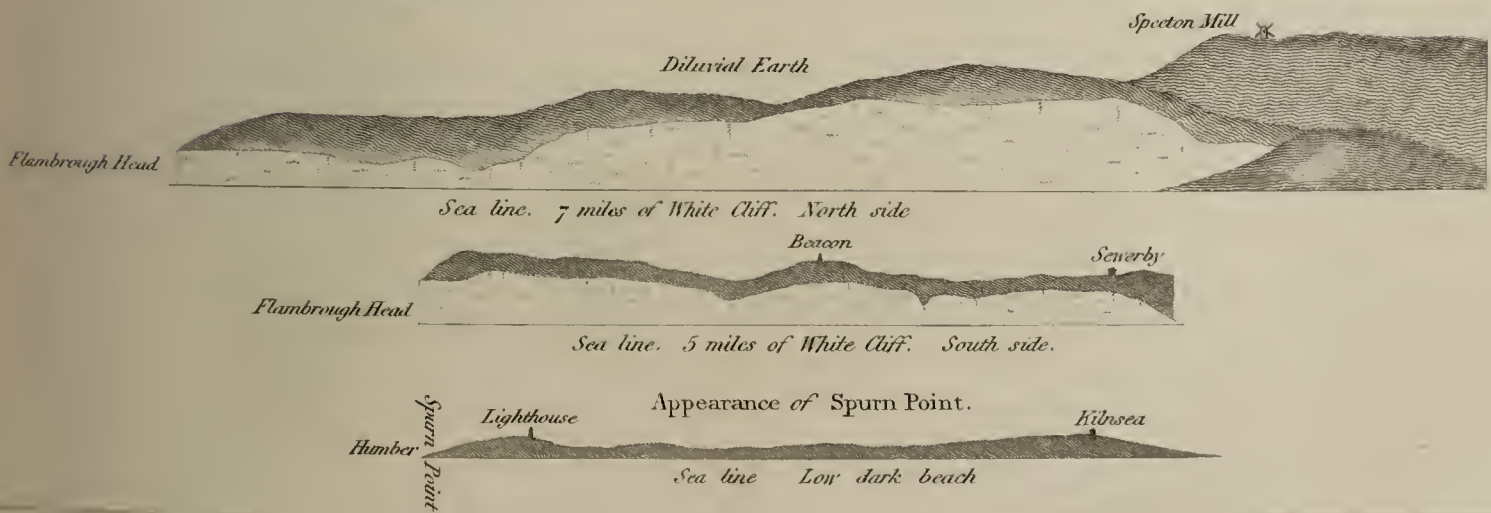 Speeton Mill
Diluvial Earth
Flambrough Head
Sea line. 7 miles of White Cliff. North side
Beacon
Sewerby
Flambrough Head
Sea line. 5 miles of White Cliff. South side.
Appearance of Spurn Point.
Lighthouse
Kilnsea
Humber
Spurn Point
Sea line Low dark beach